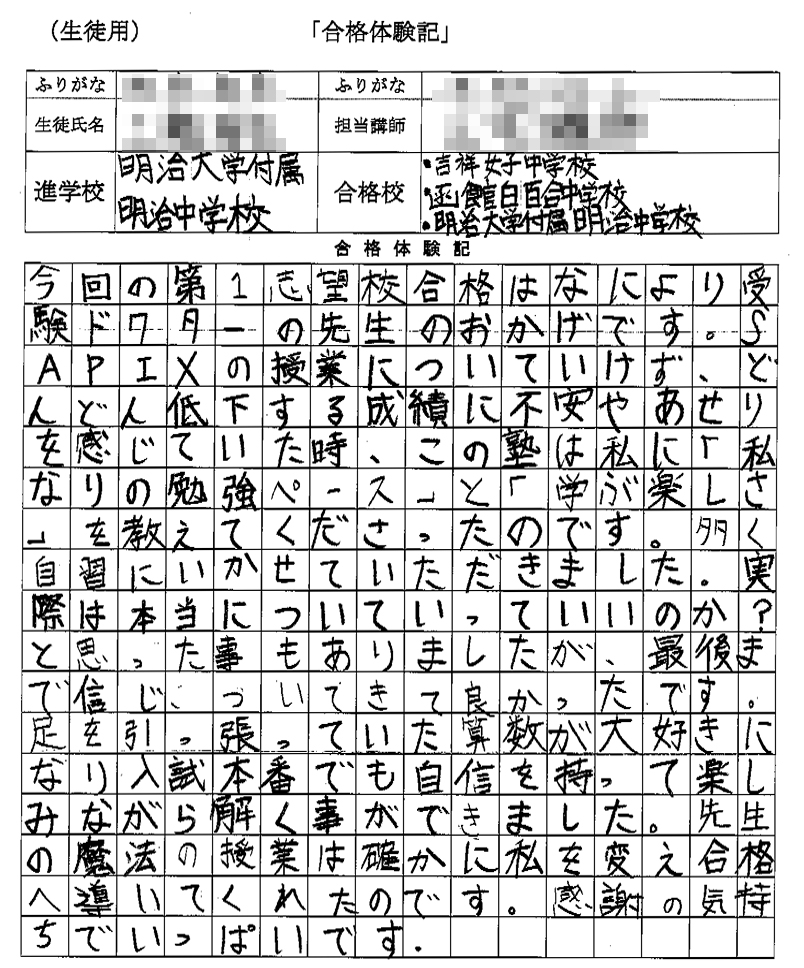 （生徒用） 「合格体験記」
ふりがな ふりがな
生徒氏名 担当講師
進学校 明治大学付属明治中学校
合格校 ・吉祥女子中学校
・函館白百合中学校
・明治大学付属明治中学校
合格体験記
今回の第1志望校合格はなにより受
験ドクターの先生のおかげです。S
APIXの授業についていけず、ど
んどん低下する成績に不安やあせり
を感じていた時、この塾は私に「私
なりの勉強ペース」と「学ぶ楽しさ
」を教えてくださったのです。多く
自習にいかせていただきました。実
際は本当についていっていいのか？
と思った事もありましたが、最後ま
で信じ、ついてきて良かったです。
足を引っ張っていた算数が大好きに
なり入試本番でも自信を持って楽し
みながら解く事ができました。先生
の魔法の授業は確かに私を変え合格
へ導いてくれたのです。感謝の気持
ちでいっぱいです．